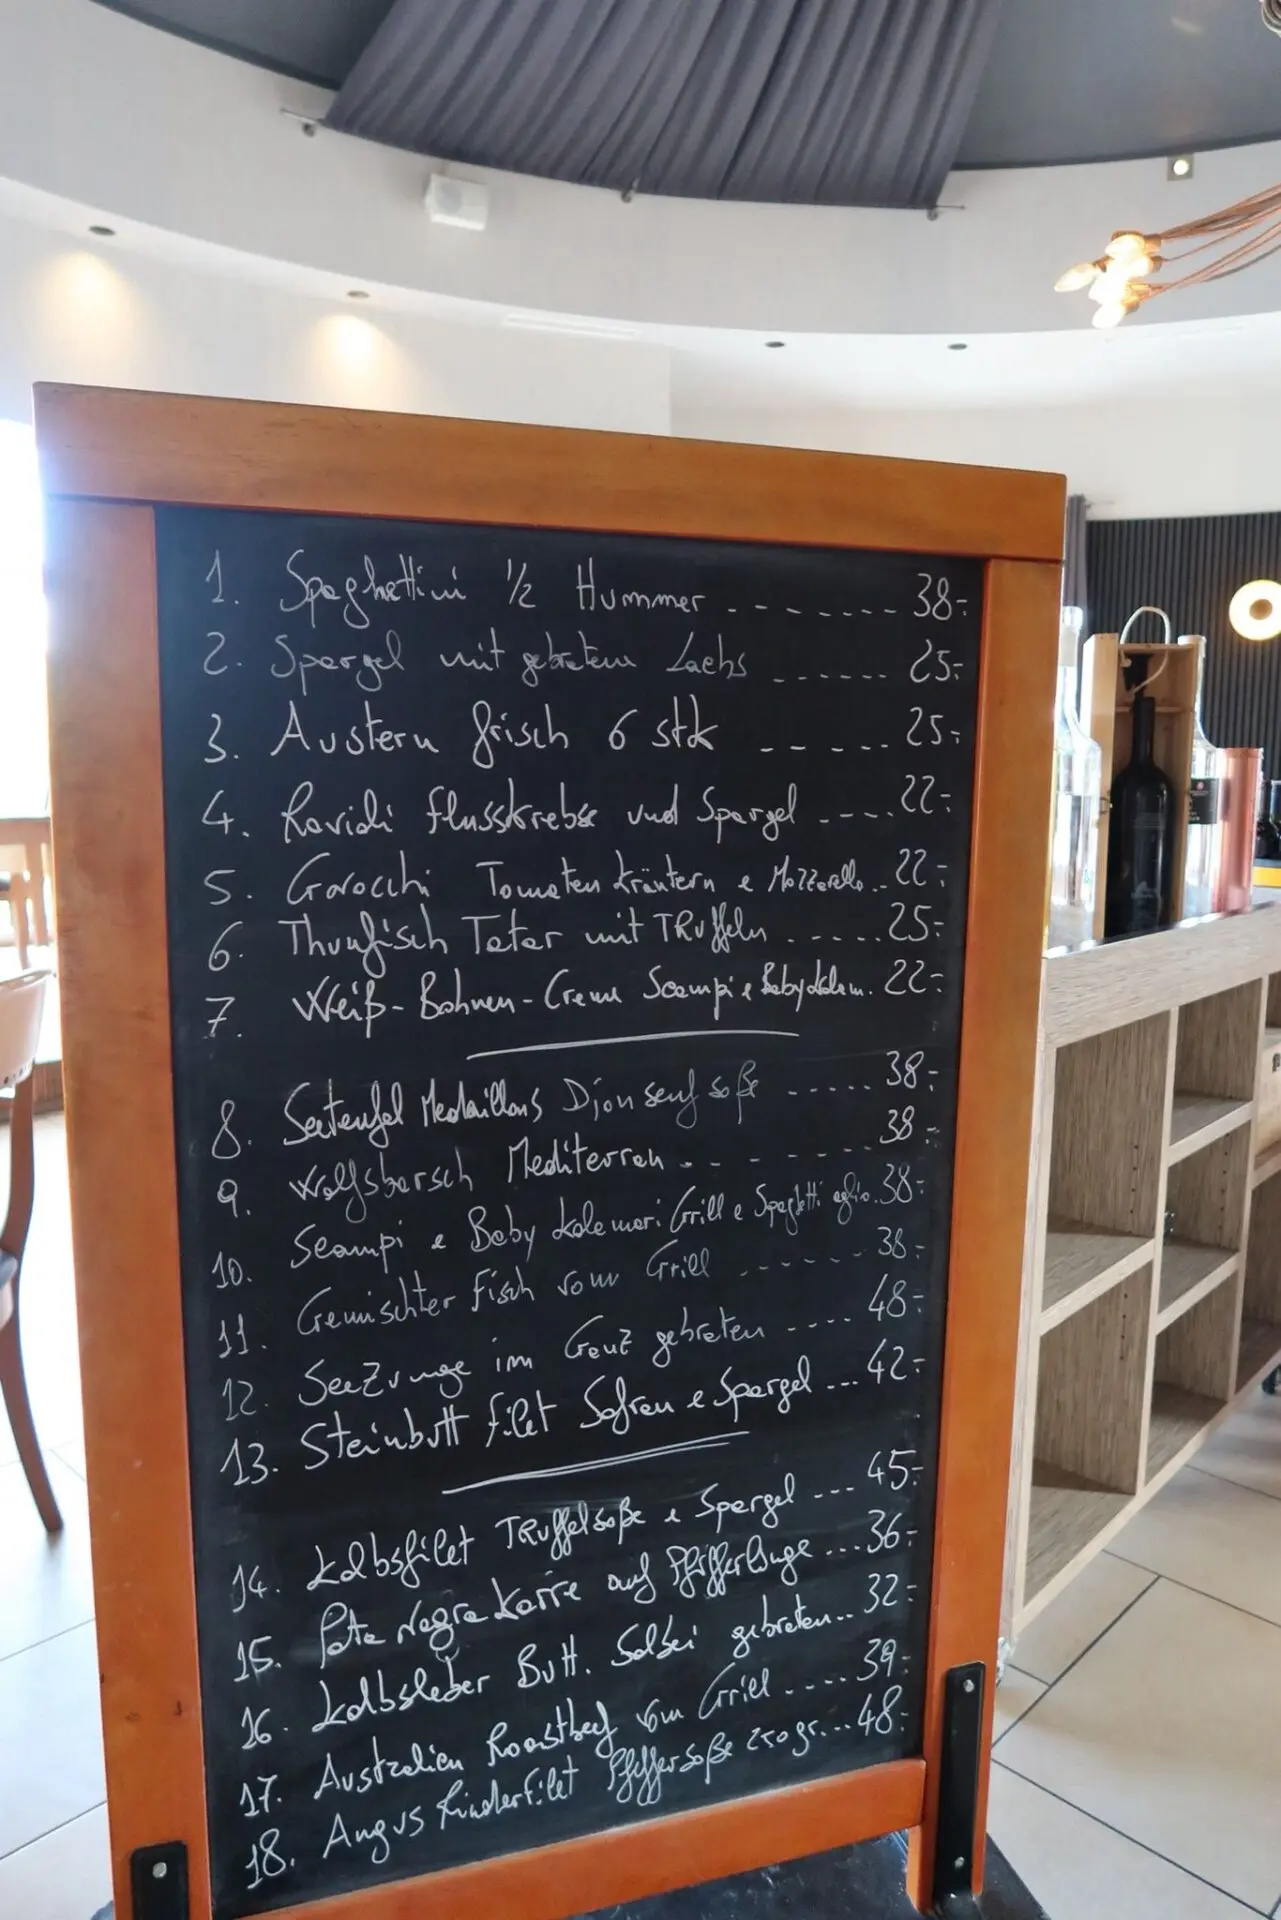 1. Spaghettini 1/2 Hummer ------- 38.-
2. Spargel mit gebratene Lachs ------ 25.-
3. Austern frisch 6 stk ----- 25.-
4. Ravioli flusskrebse und Spargel ---- 22.-
5. Gnocchi Tomaten kräutern e Mozzarella.. 22.-
6. Thunfisch Tatar mit TRüffeln ----- 25.-
7. Weiß-Bohnen-Creme Scampi e Babykalam. 22.-
8. Seeteufel Medaillons Dijon senf soße ----- 38.-
9. Wolfsbarsch Mediterran ------- 38.-
10. Scampi e Baby kalamari Grill e Spaghetti aglio. 38.-
11. Gemischter fisch vom Grill ------ 38.-
12. SeeZunge im GanZ gebraten ---- 48.-
13. Steinbutt filet Safran e Spargel ... 42.-
14. kalbsfilet TRüffelsoße e Spargel --- 45.-
15. Pata Negra karre auf Pfifferlinge ... 36.-
16. kalbsleber Butt. Salbei gebraten.. 32.-
17. Australien Roastbeef vom Grill .... 39.-
18. Angus Rinderfilet Pfeffersoße 250 gr... 48.-